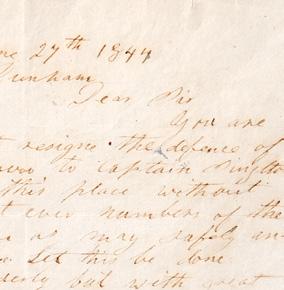 27th 1844
Dunham
Dear Sir
You are
resigne the defence of
to Captain
this place without
ever numbers of the
as may safely
Let this be done
but with great